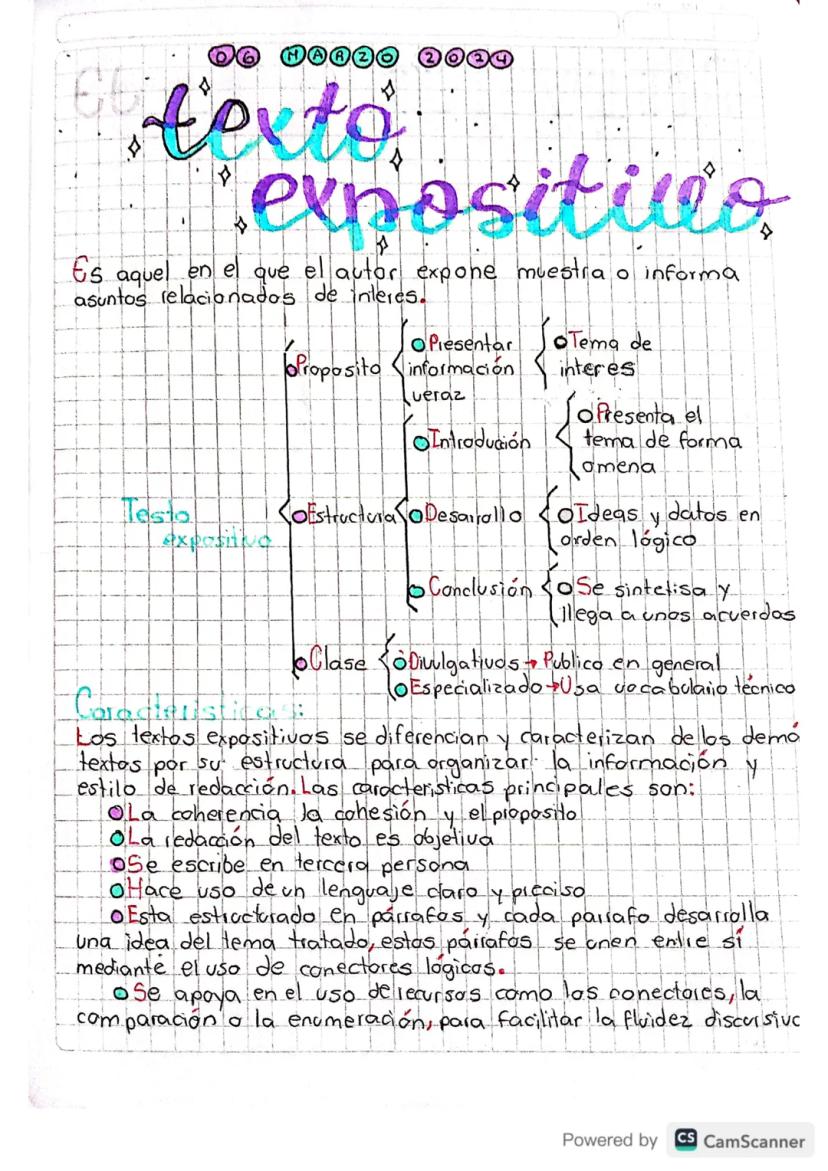 06 MARZO 2024
texto
expositivo
Es aquel en el que el autor expone muestra o informa
asuntos relacionados de interes.
Proposito
Presentar
información
veraz
Tema de
interes
Testo
expositivo
Estructura
Introdución
Presenta el
tema de forma
omena
Desarrollo
Ideas y datos en
orden lógico
Conclusión
Se sintetisa y
llega a unos acuerdos
Clase
Divulgativos → Publico en general
Especializado → Usa vocabulario técnico
Caracteristicas:
Los textos expositivos se diferencian y caracterizan de los demá
textos por su estructura para organizar la información y
estilo de redacción. Las caracteristicas principales son:
La coherencia la cohesión y el proposito
La redacción del texto es objetiva
Se escribe en tercera persona
Hace uso de un lenguaje claro y preciso
Esta estructurado en párrafos y cada parrafo desarrolla
una idea del tema tratado, estos párrafos se unen entre sí
mediante el uso de conectores lógicos.
Se apoya en el uso de recursos como los conectores, la
comparación o la enumeración, para facilitar la fluidez discursiva
Powered by CS CamScanner